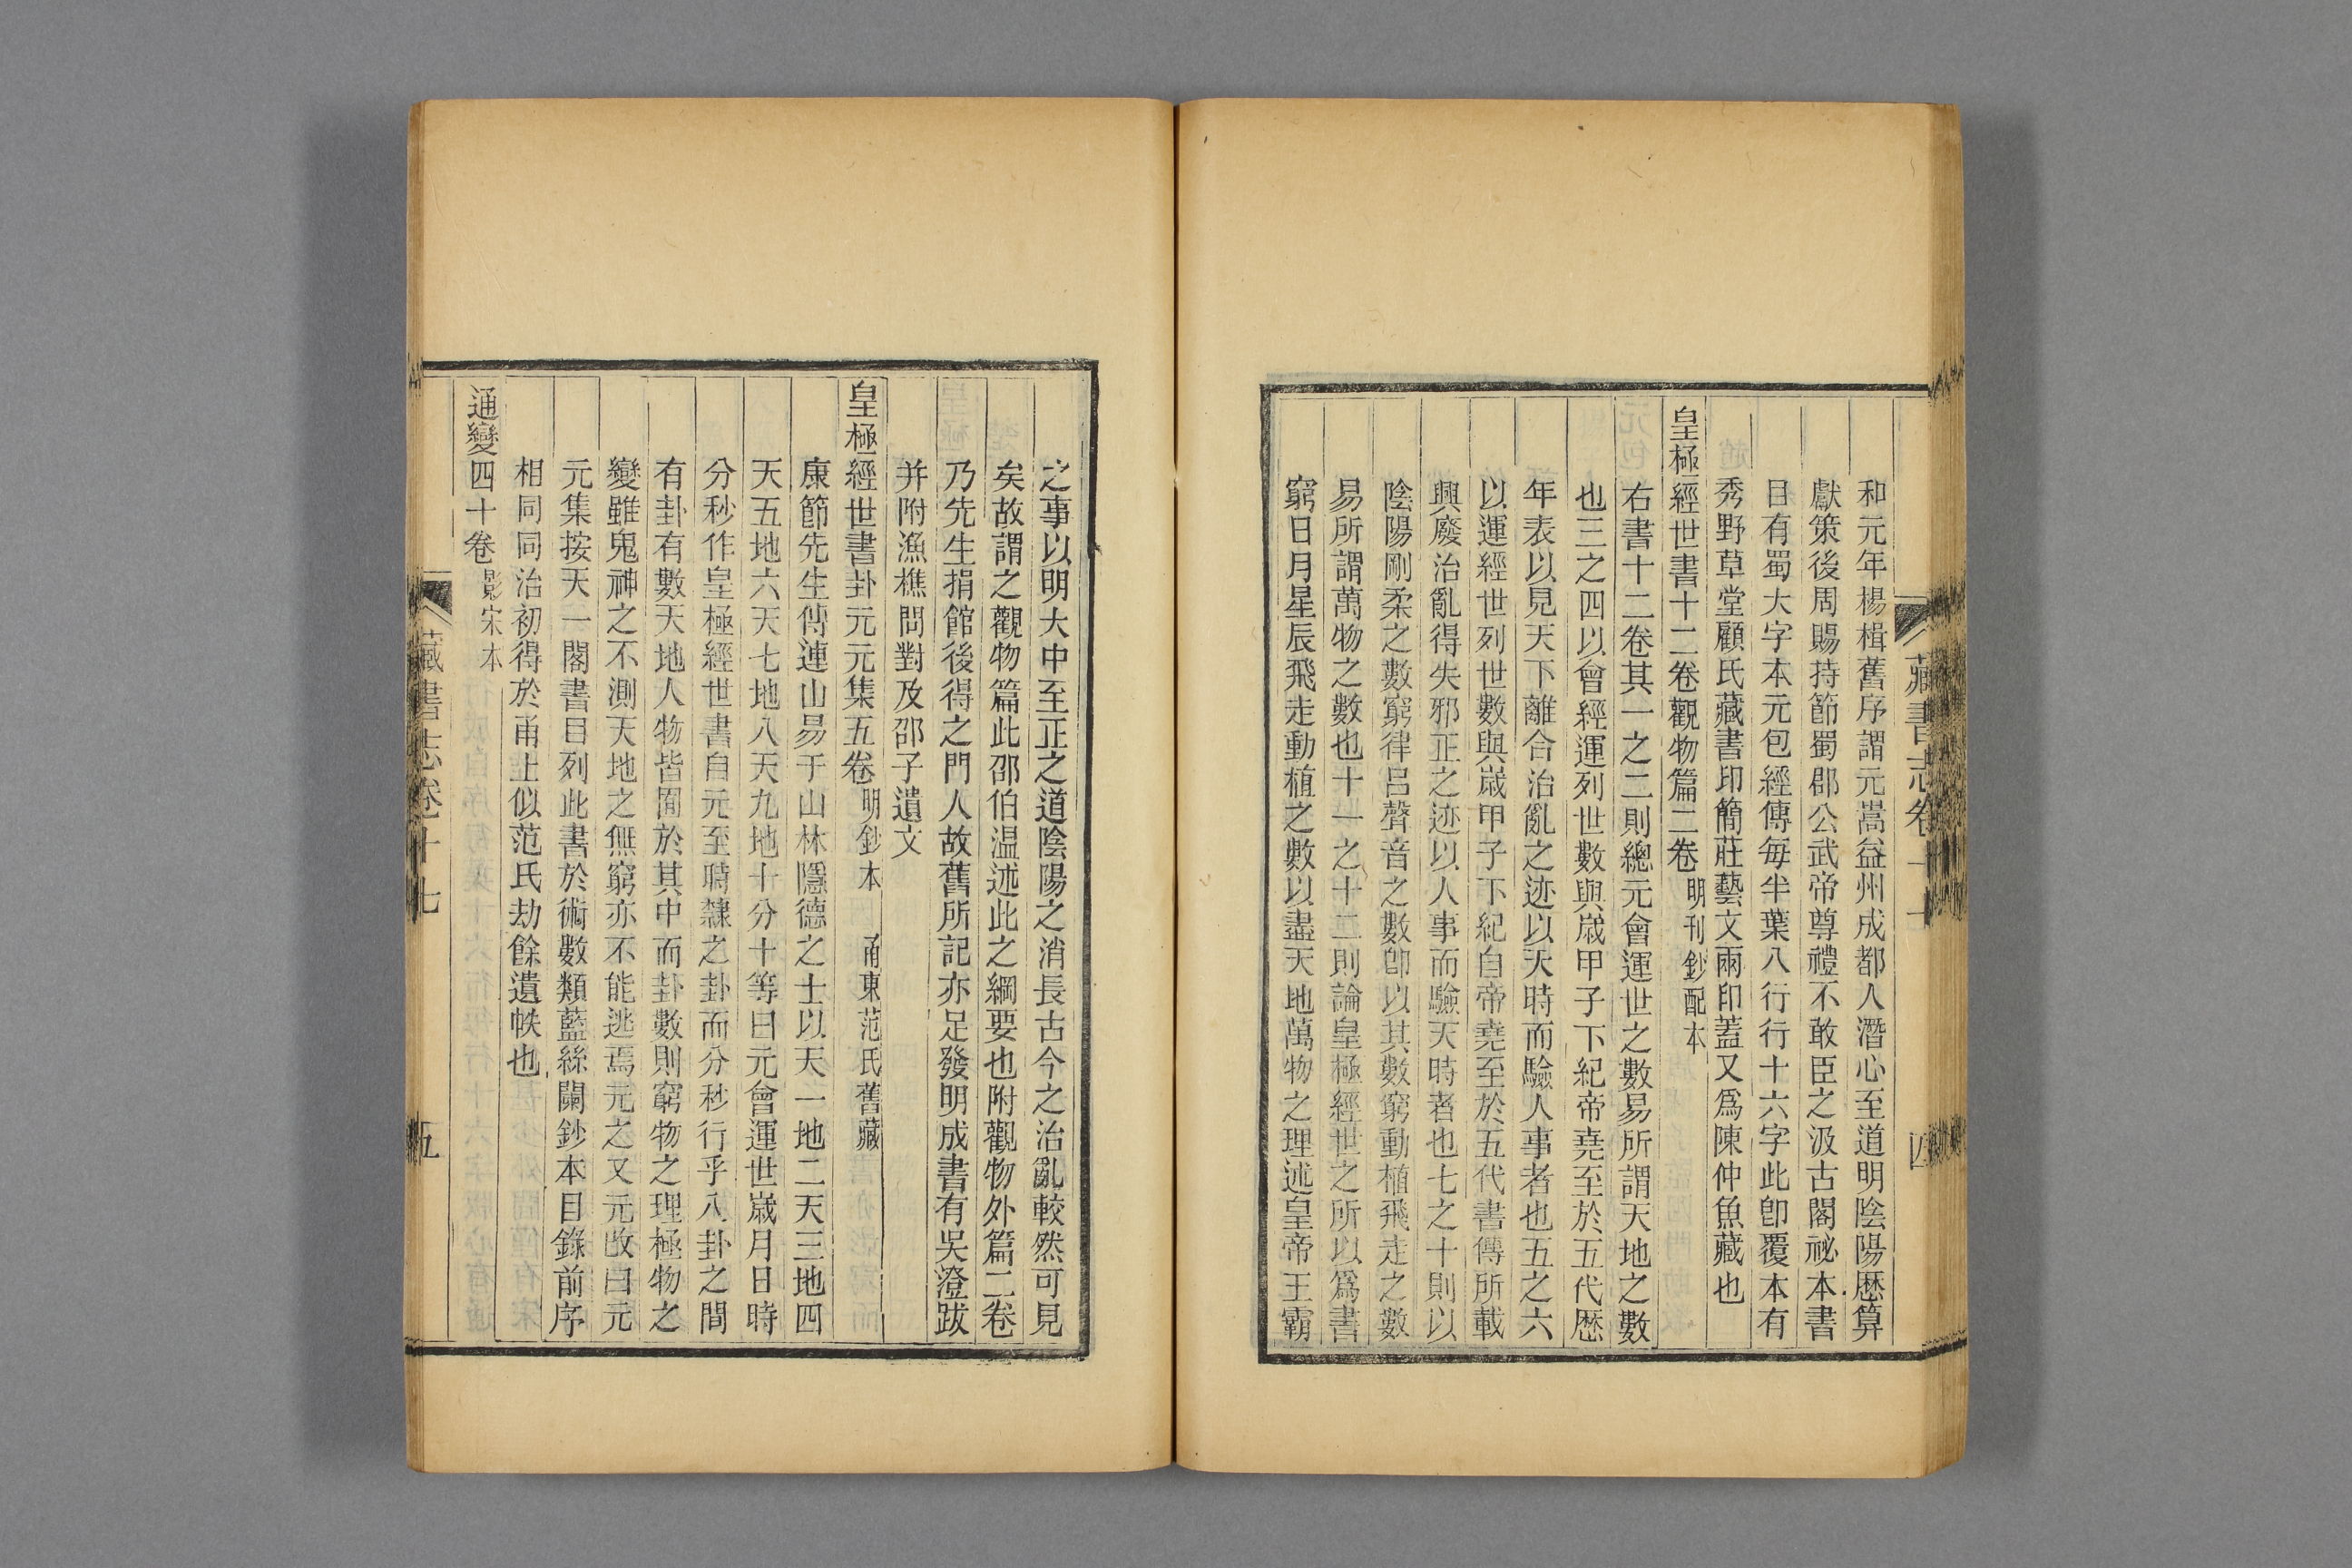 藏書志卷十七
四
和元年楊楫舊序謂元嵩益州成都人潛心至道明陰陽歷算
獻策後周賜持節蜀郡公武帝尊禮不敢臣之汲古閣祕本書
目有蜀大字本元包經傳每半葉八行行十六字此卽覆本有
秀野草堂顧氏藏書印簡莊藝文兩印蓋又爲陳仲魚藏也
皇極經世書十二卷觀物篇二卷明刊鈔配本
右書十二卷其一之二則總元會運世之數易所謂天地之數
也三之四以會經運列世數與歲甲子下紀帝堯至於五代歷
年表以見天下離合治亂之迹以天時而驗人事者也五之六
以運經世列世數與歲甲子下紀自帝堯至於五代書傳所載
興廢治亂得失邪正之迹以人事而驗天時者也七之十則以
陰陽剛柔之數窮律呂聲音之數卽以其數窮動植飛走之數
易所謂萬物之數也十一之十二則論皇極經世之所以爲書
窮日月星辰飛走動植之數以盡天地萬物之理述皇帝王霸
之事以明大中至正之道陰陽之消長古今之治亂較然可見
矣故謂之觀物篇此邵伯温述此之綱要也附觀物外篇二卷
乃先生捐館後得之門人故舊所記亦足發明成書有吳澄跋
并附漁樵問對及邵子遺文
皇極經世書卦元元集五卷明鈔本 甬東范氏舊藏
康節先生傳連山易于山林隱德之士以天一地二天三地四
天五地六天七地八天九地十分十等曰元會運世歲月日時
分秒作皇極經世書自元至時隸之卦而分秒行乎八卦之間
有卦有數天地人物皆囿於其中而卦數則窮物之理極物之
變雖鬼神之不測天地之無窮亦不能逃焉元之又元故曰元
元集按天一閣書目列此書於術數類藍絲闌鈔本目錄前序
相同同治初得於甬上似范氏劫餘遺帙也
通變四十卷影宋本
藏書志卷十七
五